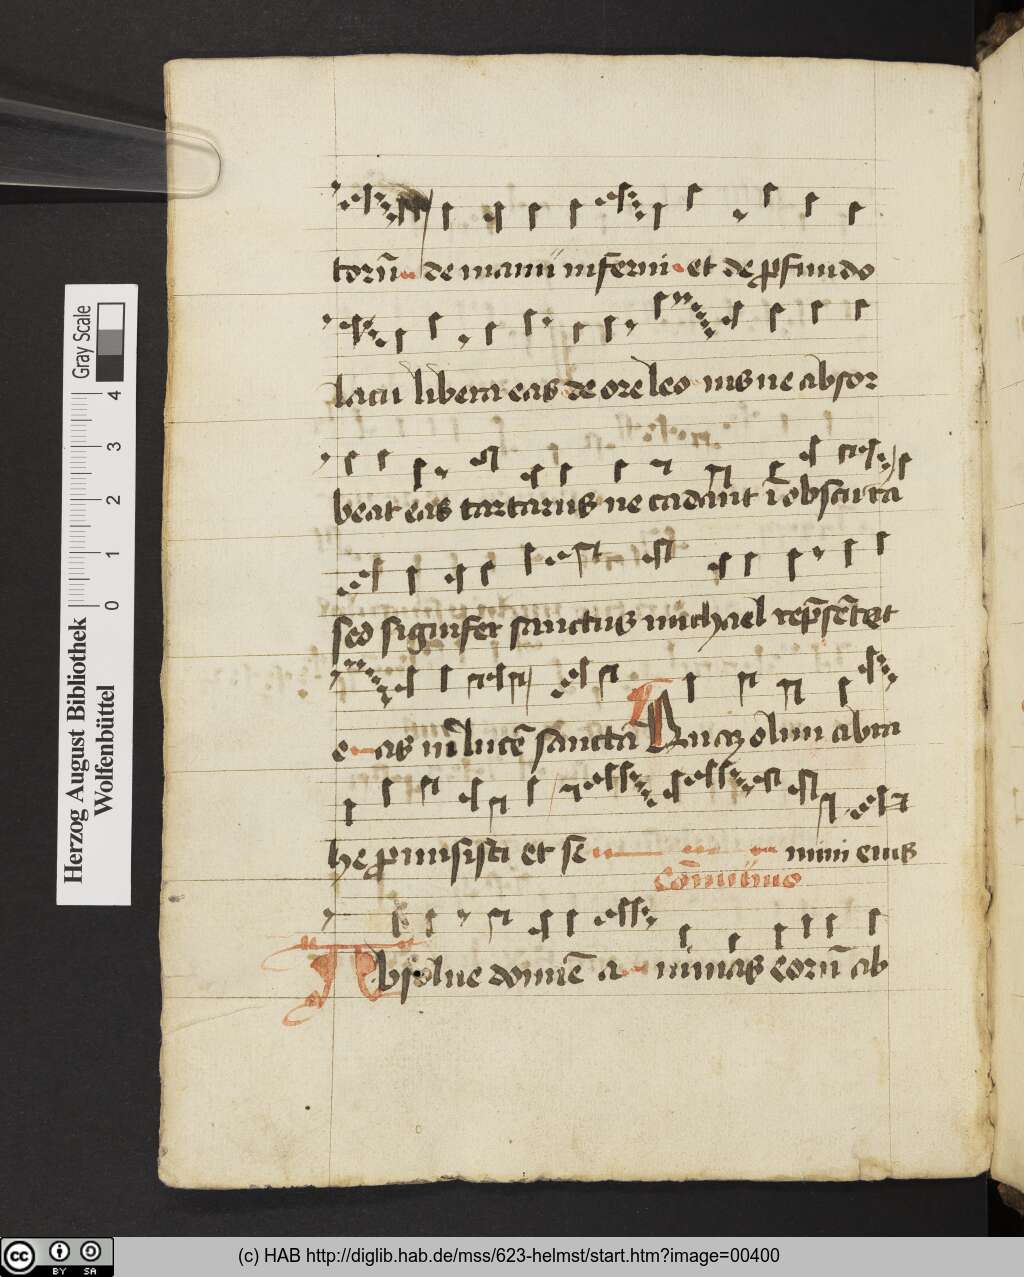 torū de manu inferni et de ꝓfundo
lacu libera eas de ore leo nis ne absor
beat eas tartarus ne cadant ī obscura
sed signifer sanctus michael rep̄sētet
e as in lucē sancta Quaꝫ olim abra
he ꝓmisisti et se mini eius
cōmunio
Absolue domine a nimas eorū ab
Herzog August Bibliothek
Wolfenbüttel
0 1 2 3 4
Gray Scale
cc BY SA
(c) HAB http://diglib.hab.de/mss/623-helmst/start.htm?image=00400